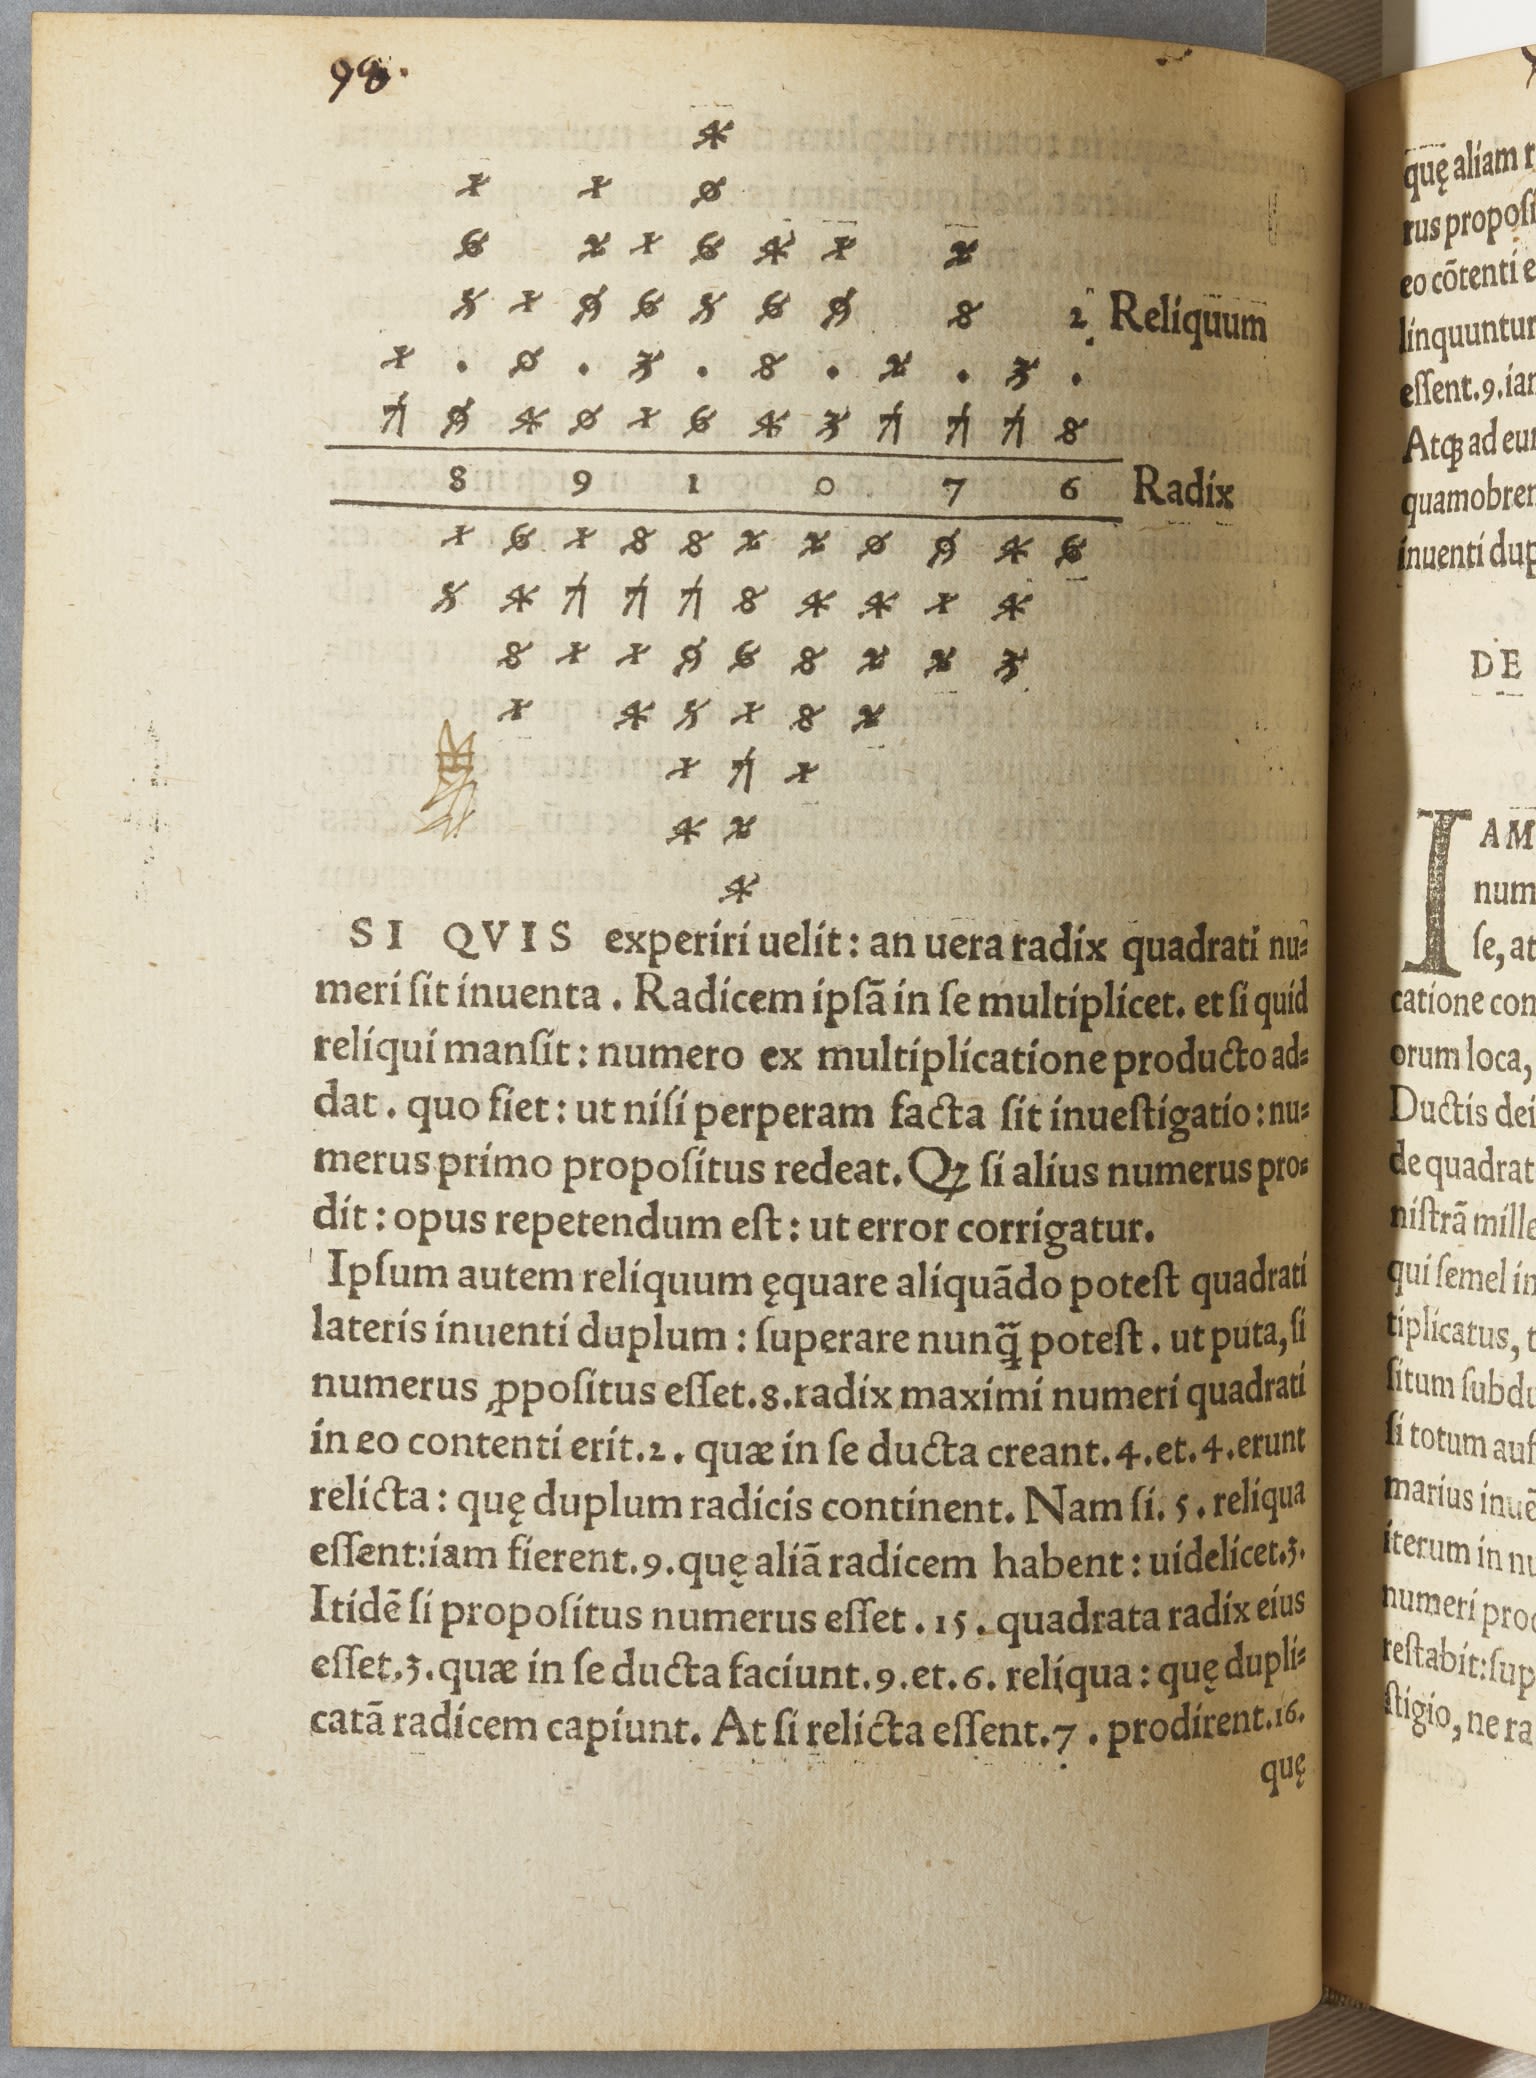 98.
4
1 1 0
6 2 1 6 4 1 2
5 1 9 6 5 6 9 8 2 Reliquum
1 . 0 . 3 . 8 . 2 . 3 .
7 9 4 0 1 6 4 3 7 7 7 8
8 9 1 0 7 6 Radix
1 6 1 8 8 2 2 0 9 4 6
5 4 7 7 7 8 4 4 1 4
8 1 1 9 6 8 2 2 3
1 4 5 1 8 2
1 7 1
4 2
4
SI QVIS experiri uelit: an uera radix quadrati nu⸗
meri ſit inuenta. Radicem ipſã in ſe multiplicet. et ſi quid
reliqui manſit: numero ex multiplicatione producto ad⸗
dat. quo fiet: ut niſi perperam facta ſit inueſtigatio: nu⸗
merus primo propoſitus redeat. Qꝫ ſi alius numerus pro⸗
dit: opus repetendum eſt: ut error corrigatur.
Ipſum autem reliquum ęquare aliquãdo poteſt quadrati
lateris inuenti duplum: ſuperare nunq̃ poteſt. ut puta, ſi
numerus ꝓpoſitus eſſet.8.radix maximi numeri quadrati
in eo contenti erit.2. quæ in ſe ducta creant.4.et.4.erunt
relicta: quę duplum radicis continent. Nam ſi.5. reliqua
eſſent:iam fierent.9.quę aliã radicem habent: uidelicet.3.
Itidẽ ſi propoſitus numerus eſſet.15.quadrata radix eius
eſſet.3.quæ in ſe ducta faciunt.9.et.6. reliqua: quę dupli⸗
catã radicem capiunt. At ſi relicta eſſent.7. prodirent.16.
quę
quę aliam r
rus propoſi
eo cõtenti e
linquuntur
eſſent.9.iar
Atqꝫ ad eur
quamobrer
inuenti dup
DE
IAM
num
ſe, at
catione con
orum loca,
Ductis dei
de quadrat
niſtrã mille
qui ſemel in
tiplicatus, t
ſitum ſubdu
ſi totum auf
marius inuẽ
iterum in nu
numeri proc
reſtabit:ſup
ſtigio, ne ra